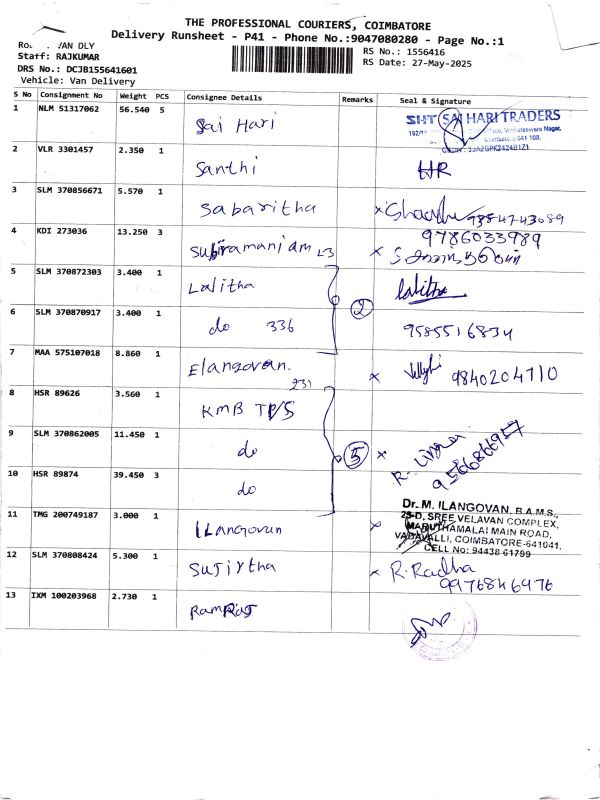 THE PROFESSIONAL COURIERS, COIMBATORE
Delivery Runsheet - P41 - Phone No.:9047080280 - Page No.:1
VAN DLY
Staff: RAJKUMAR
DRS No.: DCJB155641601
Vehicle: Van Delivery
RS No.: 1556416
RS Date: 27-May-2025
S No Consignment No Weight PCS Consignee Details Remarks Seal & Signature
1 NLM 51317062 56.540 5 Sai Hari
SHT SAI HARI TRADERS
Venkateswara Nagar,
2 VLR 3301457 2.350 1 Santhi HR
3 SLM 370856671 5.570 1 Sabaritha x 9884743089
4 KDI 273036 13.250 3 Subramaniam 9786033989
x
5 SLM 370872303 3.400 1 Lalitha Lalitha
2
6 SLM 370870917 3.400 1 do 336 9585516834
7 MAA 575107018 8.860 1 Elangovan. x 9840204710
231
8 HSR 89626 3.560 1 KMB
9 SLM 370862005 11.450 1 do 5 x 9566866957
10 HSR 89874 39.450 3 do
Dr. M. ILANGOVAN, B.A.M.S.,
25-D, SREE VELAVAN COMPLEX,
MARUTHAMALAI MAIN ROAD,
VADAVALLI, COIMBATORE-641041,
CELL No: 94438 61799
11 TMG 200749187 3.000 1 Ilangovan x
12 SLM 370808424 5.300 1 Sujirtha x R. Radha
9976846976
13 IXM 100203968 2.730 1 Ramraj